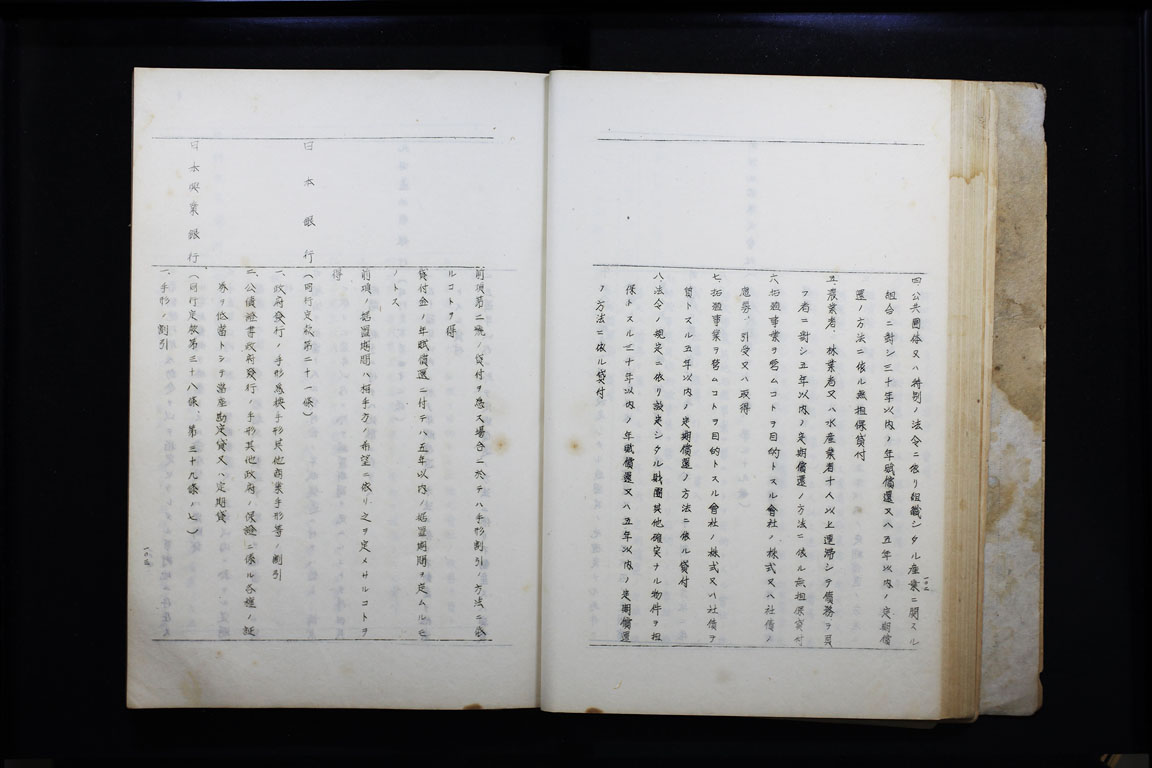 四、公共團体又ハ特別ノ法令ニ依リ組織シタル産業ニ関スル
組合ニ對シ三十年以内ノ年賦償還又ハ五年以内ノ定期償
還ノ方法ニ依ル無担保貸付
五、農業者、林業者又ハ水産業者十人以上連帶シテ債務ヲ負
フ者ニ對シ五年以内ノ定期償還ノ方法ニ依ル無担保貸付
六、拓殖事業ヲ営ムコトヲ目的トスル會社ノ株式又ハ社債ノ
應募、引受又ハ取得
七、拓殖事業ヲ営ムコトヲ目的トスル會社ノ株式又ハ社債ヲ
質トスル五年以内ノ定期償還ノ方法ニ依ル貸付
八、法令ノ規定ニ依リ設定シタル財團其他確実ナル物件ヲ担
保トスル三十年以内ノ年賦償還又ハ五年以内ノ定期償還
ノ方法ニ依ル貸付
前項第二號ノ貸付ヲ為ス場合ニ於テハ手形割引ノ方法ニ依
ルコトヲ得
貸付金ノ年賦償還ニ付テハ五年以内ノ据置期間ヲ定ムルモ
ノトス
前項ノ据置期間ハ相手方ノ希望ニ依リ之ヲ定メサルコトヲ
得
日本銀行(同行定款第二十一條)
一、政府發行ノ手形為換手形其他商業手形等ノ割引
二、公債證書政府發行ノ手形其他政府ノ保證ニ係ル各種ノ証
券ヲ抵當トシテ當座勘定貸又ハ定期貸
日本興業銀行(同行定款第三十八條、第三十九條ノ七)
一、手形ノ割引